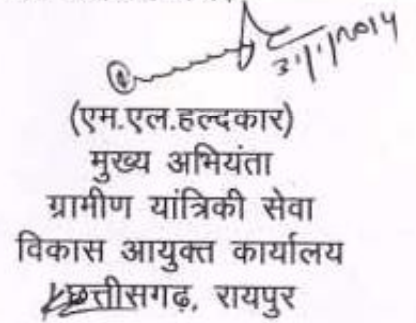 31/1/2014
(एम.एल.हल्दकार)
मुख्य अभियंता
ग्रामीण यांत्रिकी सेवा
विकास आयुक्त कार्यालय
छत्तीसगढ़, रायपुर